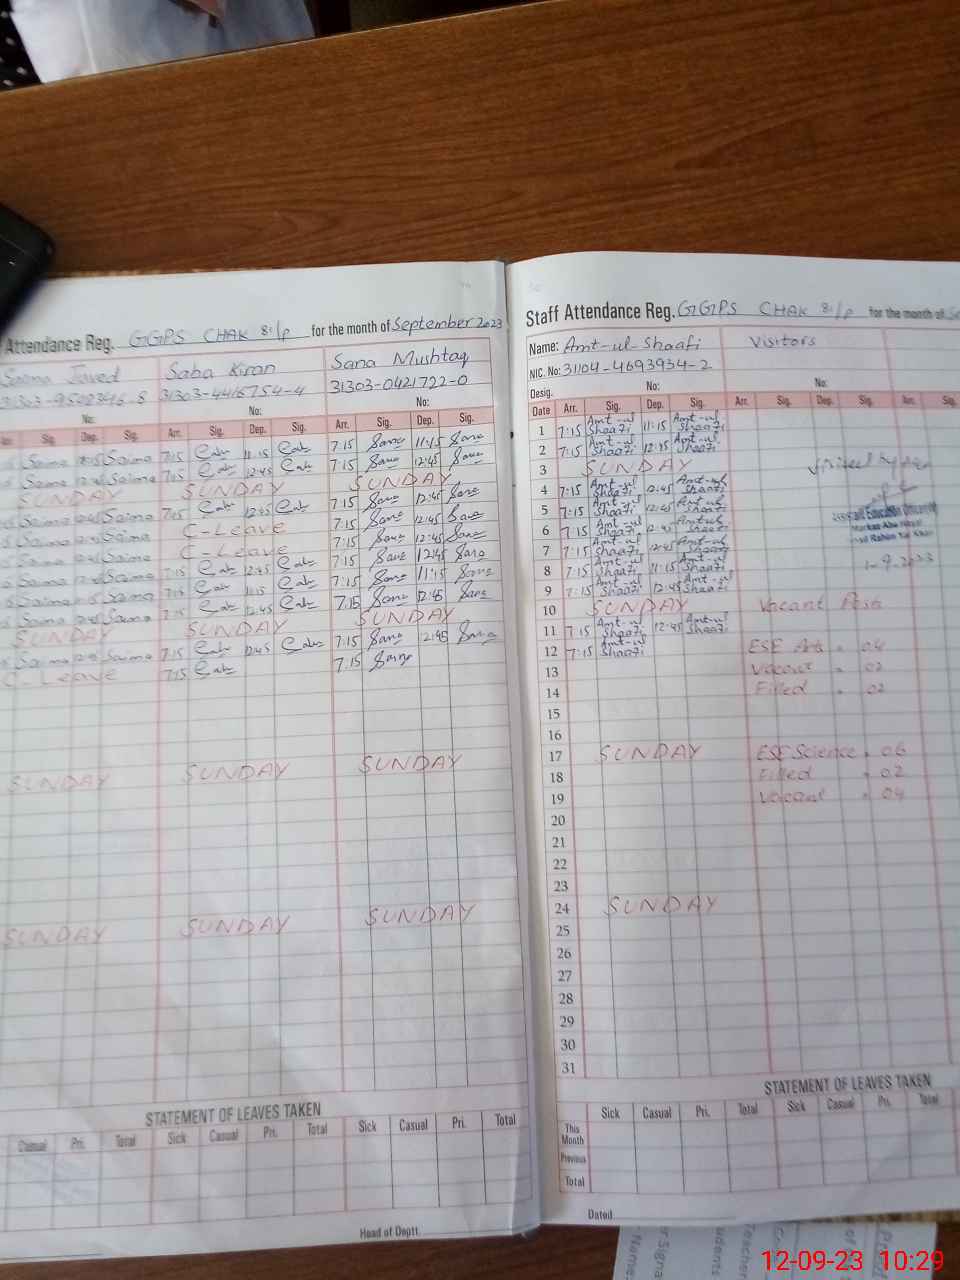 Attendance Reg. GGPS CHAK 81/P for the month of September 2023
Saima Javed Saba Kiran Sana Mushtaq
31303-4416754-4 31303-0421722-0
No: No: No:
Sig. Dep. Sig. Arr. Sig. Dep. Sig. Arr. Sig. Dep. Sig.
Saima Saima 7:15 11:15 7:15 Sana 11:15 Sana
Saima Saima 7:15 12:45 7:15 Sana 12:45 Sana
SUNDAY SUNDAY SUNDAY
Saima Saima 7:15 12:45 7:15 Sana 12:45 Sana
Saima Saima C-Leave 7:15 Sana 12:45 Sana
Saima Saima C-Leave 7:15 Sana 12:45 Sana
Saima Saima 7:15 12:45 7:15 Sana 12:45 Sana
Saima Saima 7:15 11:15 7:15 Sana 11:15 Sana
Saima Saima 7:15 12:45 7:15 Sana 12:45 Sana
SUNDAY SUNDAY SUNDAY
Saima Saima 7:15 12:45 7:15 Sana 12:45 Sana
C-Leave 7:15 7:15 Sana
SUNDAY SUNDAY SUNDAY
SUNDAY SUNDAY SUNDAY
STATEMENT OF LEAVES TAKEN
Casual Pri. Total Sick Casual Pri. Total Sick Casual Pri. Total
Head of Deptt.
Staff Attendance Reg. GGPS CHAK 81/P for the month of
Name: Amt-ul-Shaafi Visitors
NIC. No: 31104-4693934-2
Desig. No: No:
Date Arr. Sig. Dep. Sig. Arr. Sig. Dep. Sig. Arr. Sig.
1 7:15 Amt-ul Shaafi 11:15 Amt-ul Shaafi
2 7:15 Amt-ul Shaafi 12:45 Amt-ul Shaafi
3 SUNDAY
4 7:15 Amt-ul Shaafi 12:45 Amt-ul Shaafi
5 7:15 Amt-ul Shaafi 12:45 Amt-ul Shaafi
6 7:15 Amt-ul Shaafi 12:45 Amt-ul Shaafi
7 7:15 Amt-ul Shaafi 12:45 Amt-ul Shaafi
8 7:15 Amt-ul Shaafi 11:15 Amt-ul Shaafi
9 7:15 Amt-ul Shaafi 12:45 Amt-ul Shaafi
10 SUNDAY Vacant Posts
11 7:15 Amt-ul Shaafi 12:45 Amt-ul Shaafi
12 7:15 Amt-ul Shaafi ESE Arts = 04
13 Vacant = 02
14 Filled = 02
15
16
17 SUNDAY ESE Science = 06
18 Filled = 02
19 Vacant = 04
20
21
22
23
24 SUNDAY
25
26
27
28
29
30
31
STATEMENT OF LEAVES TAKEN
Sick Casual Pri. Total Sick Casual Pri. Total
This Month
Previous
Total
Dated
12-09-23 10:29